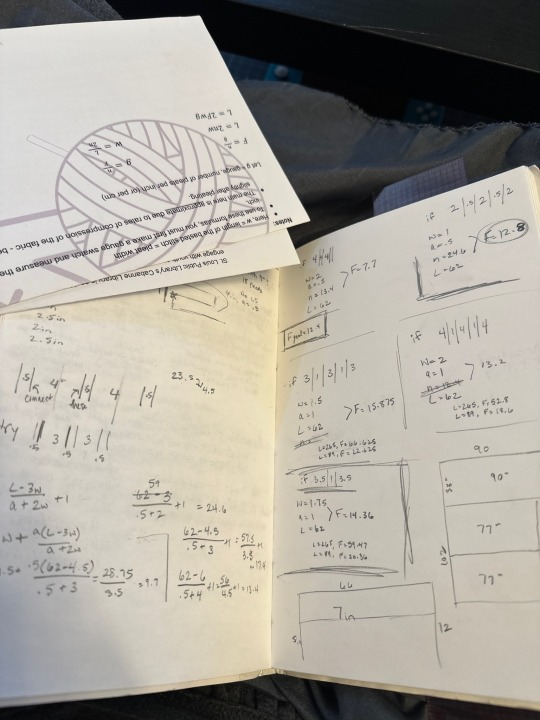 St. Louis Public Library's Cabanne Library
engage with your
Notes:
Here w = length of the based stitch = pleat width
To use these formulas, you must first make a gauge swatch and measure the
inch.
The math here is approximate due to rates of compression of the fabric - be
slightly after pleating.
Let g = gauge, number of pleats per inch (or per cm)
g = n/F
F = n/g
w = L/2n
L = 2nw
L = 2Fwg
2.5in
2in
2.5in
.5
4"
.5
4
.5
connect
23.5
4.5
try
3
3
.5
.5
L-3w / a+2w + 1
59
62-3 / .5+2 + 1 = 24.6
w + a(L-3w) / a+2w
62-4.5 / .5+3 + 1 = 57.5 / 3.5 + 1
= 17.4
.5(62-4.5) / .5+3 = 28.75 / 3.5 = 9.7
62-6 / .5+4 + 1 = 56 / 4.5 + 1 = 13.4
if 2|.5|2|.5|2
w=1
a=.5
n=24.6
L=62
F=12.8
if 4
w=2
a=.5
n=13.4
L=62
F=7.7
if 4|1|4|1|4
w=2
a=1
L=62
13.2
L=265, F=52.8
L=89, F=18.6
if 3|1|3|1|3
w=1.5
a=1
L=62
F=15.875
L=265, F=66.625
L=89, F=22.625
if 3.5|1|3.5
w=1.75
a=1
L=62
F=14.36
L=265, F=59.47
L=89, F=20.36
90
90"
77"
77"
102
66
7in
12